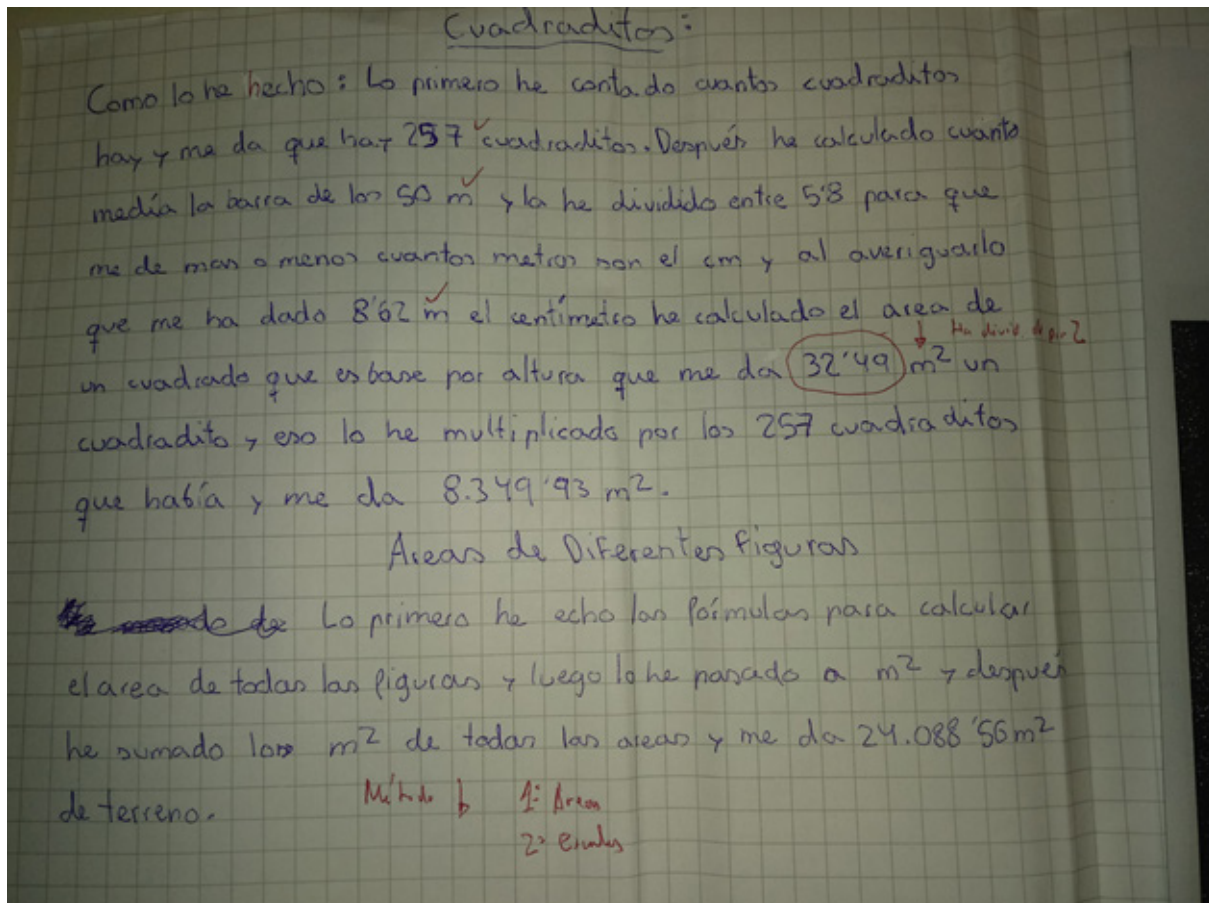 Cuadraditos:
Como lo he hecho: Lo primero he contado cuantos cuadraditos
hay y me da que hay 257 cuadraditos. Después he calculado cuanto
media la barra de los 50 m y la he dividido entre 5'8 para que
me de mas o menos cuantos metros son el cm y al averiguarlo
que me ha dado 8'62 m el centímetro he calculado el area de
Ha divid por 2
un cuadrado que es base por altura que me da 32'49 m² un
cuadradito y eso lo he multiplicado por los 257 cuadraditos
que había y me da 8.349'93 m².
Areas de Diferentes Figuras
Lo primero he echo las fórmulas para calcular
el area de todas las figuras y luego lo he pasado a m² y después
he sumado los m² de todas las areas y me da 24.088'56 m²
de terreno.
Método b 1º Areas
2º